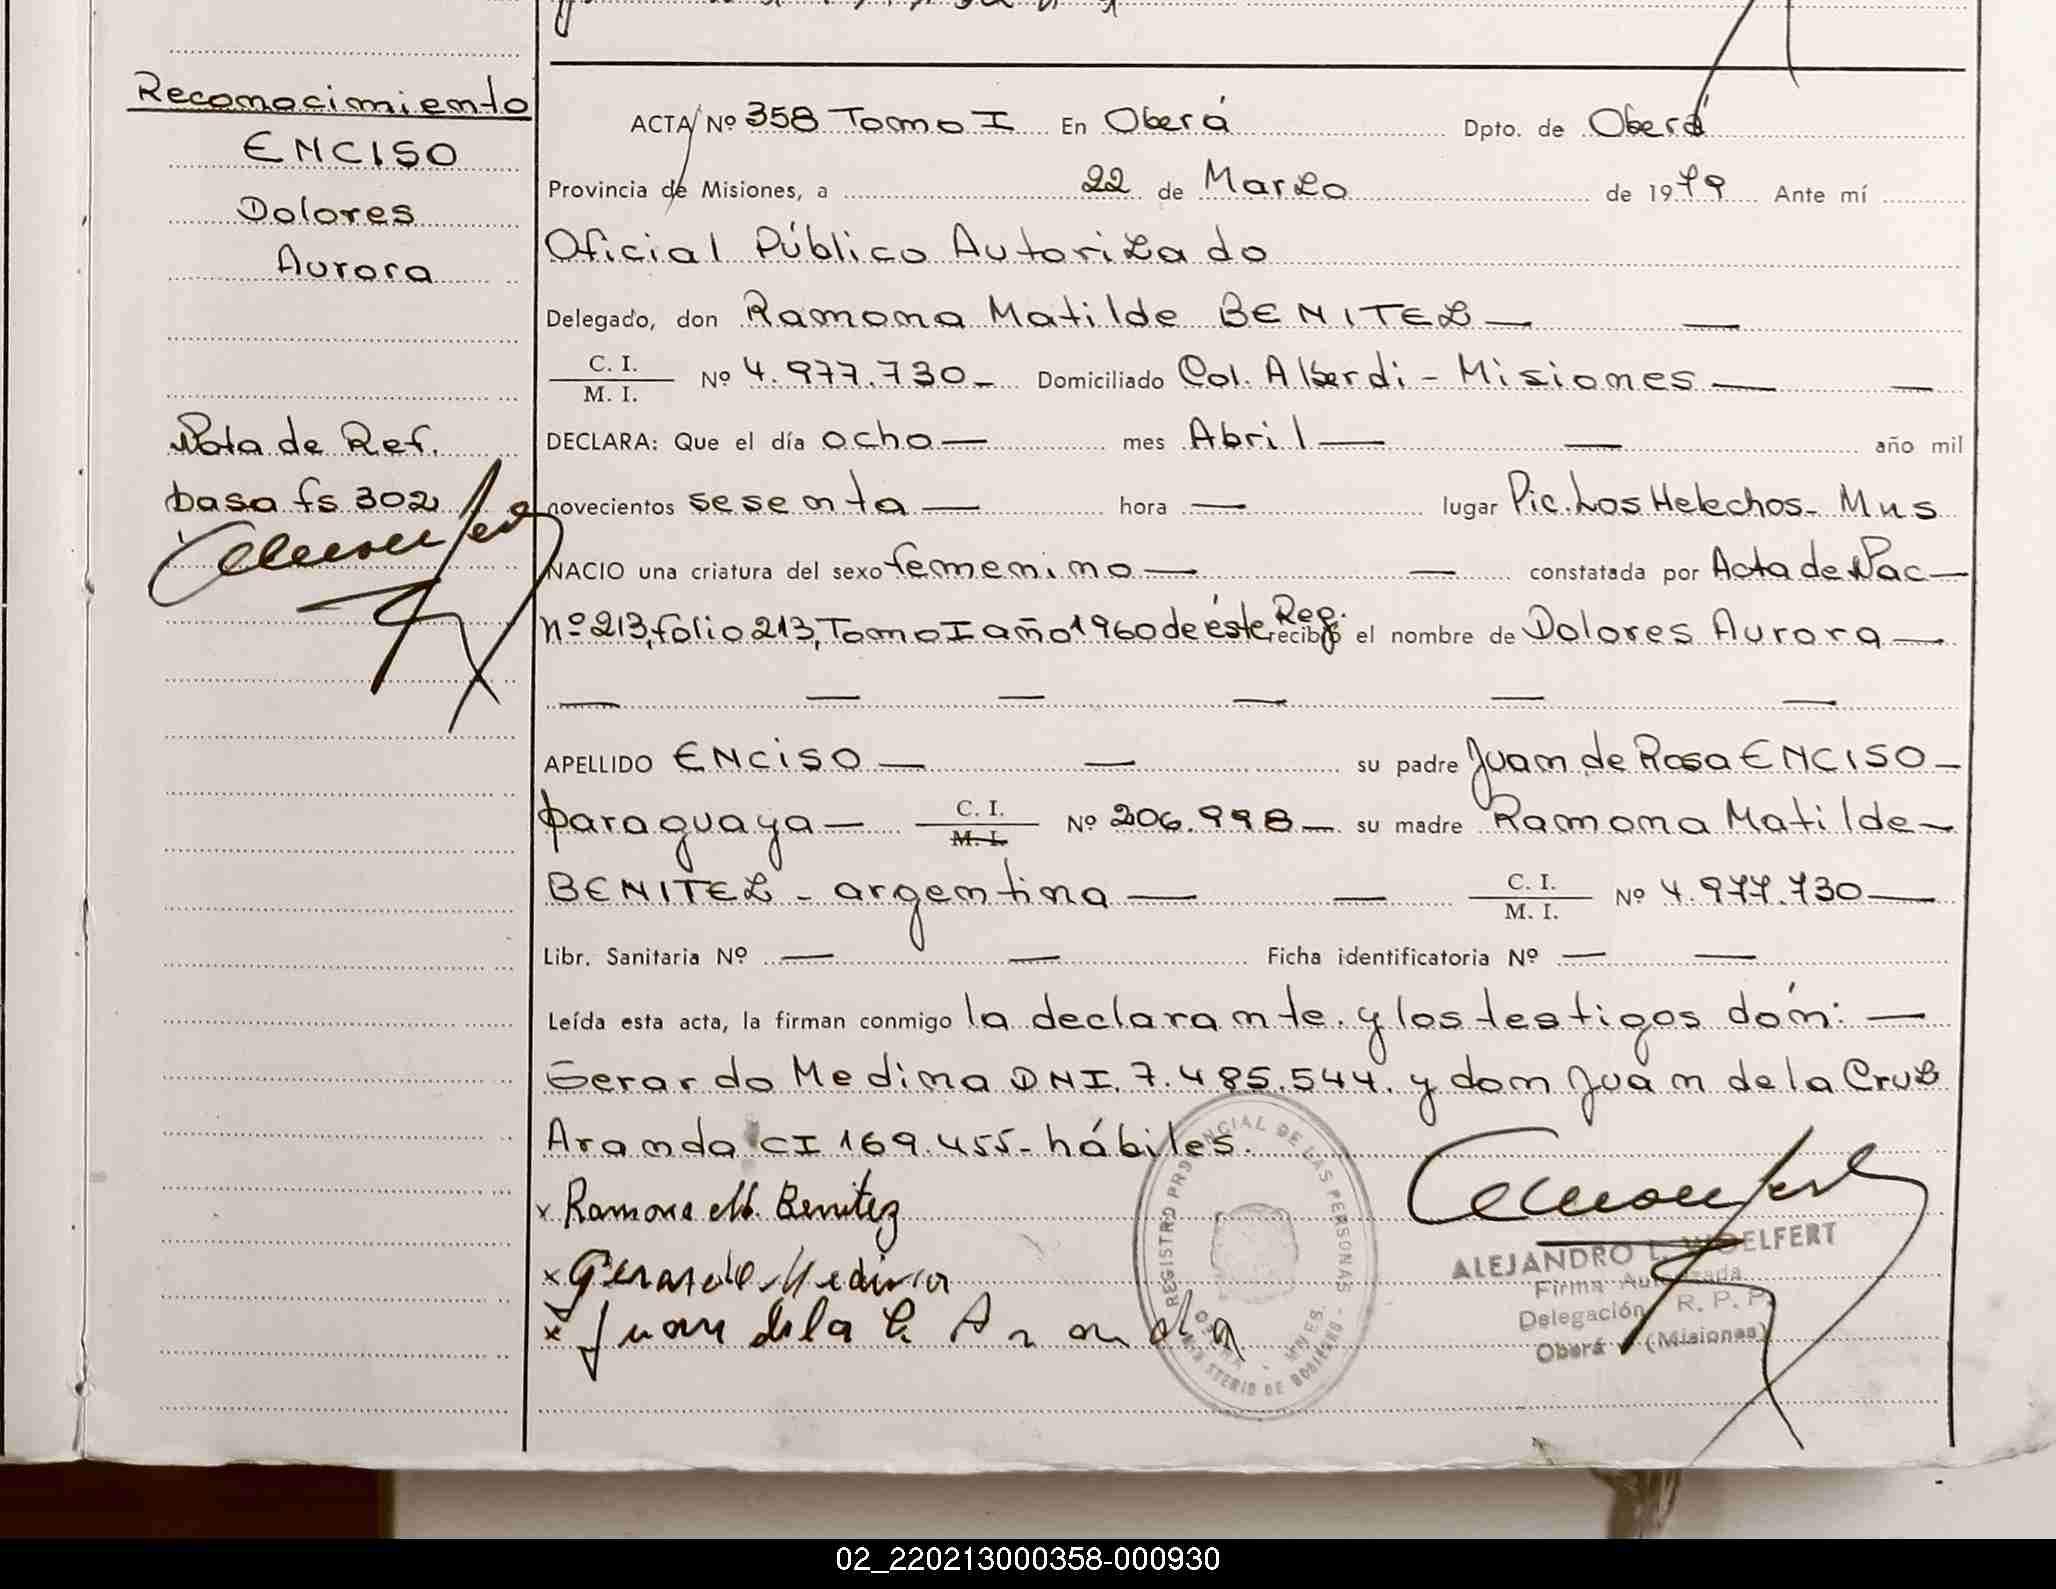 Reconocimiento
ENCISO
Dolores
Aurora
Nota de Ref.
pasa fs 302
ACTA Nº 358 Tomo I En Oberá Dpto. de Oberá
Provincia de Misiones, a 22 de Marzo de 1979 Ante mí
Oficial Público Autorizado
Delegado, don Ramona Matilde BENITEZ —
C. I. / M. I. Nº 4.977.730 — Domiciliado Col. Alberdi - Misiones —
DECLARA: Que el día ocho — mes Abril — año mil
novecientos sesenta — hora — lugar Pic. Los Helechos - Mns
NACIO una criatura del sexo femenino — constatada por Acta de Nac —
Nº 213, folio 213, Tomo I año 1960 de éste Reg. recibió el nombre de Dolores Aurora —
— — — — — —
APELLIDO ENCISO — su padre Juan de Rosa ENCISO —
paraguaya — C. I. / M. I. Nº 206.998 — su madre Ramona Matilde —
BENITEZ - argentina — C. I. / M. I. Nº 4.977.730 —
Libr. Sanitaria Nº — Ficha identificatoria Nº —
Leída esta acta, la firman conmigo la declarante y los testigos dón: —
Gerardo Medina DNI. 7.485.544. y don Juan de la Cruz
Aranda CI 169.455 - hábiles.
x Ramona M. Benitez
x Gerardo Medina
x Juan de la C. Aranda
REGISTRO PROVINCIAL DE LAS PERSONAS - MINISTERIO DE GOBIERNO
OBERA - MNES.
ALEJANDRO L. WOELFERT
Firma Autorizada
Delegación R. P. P.
Oberá (Misiones)
02_220213000358-000930